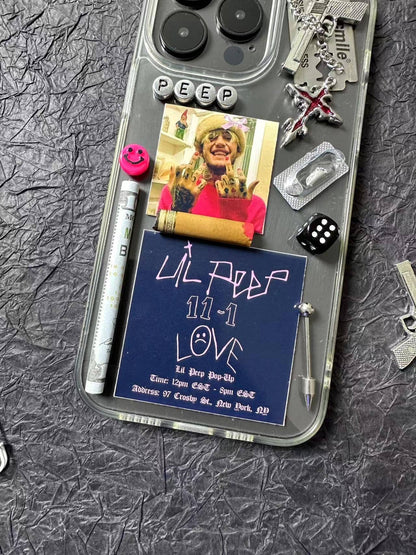 Smile
PEEP
LiL PEEP
11-1
LOVE
Lil Peep Pop-Up
Time: 12pm EST - 8pm EST
Address: 97 Crosby St., New York, NY